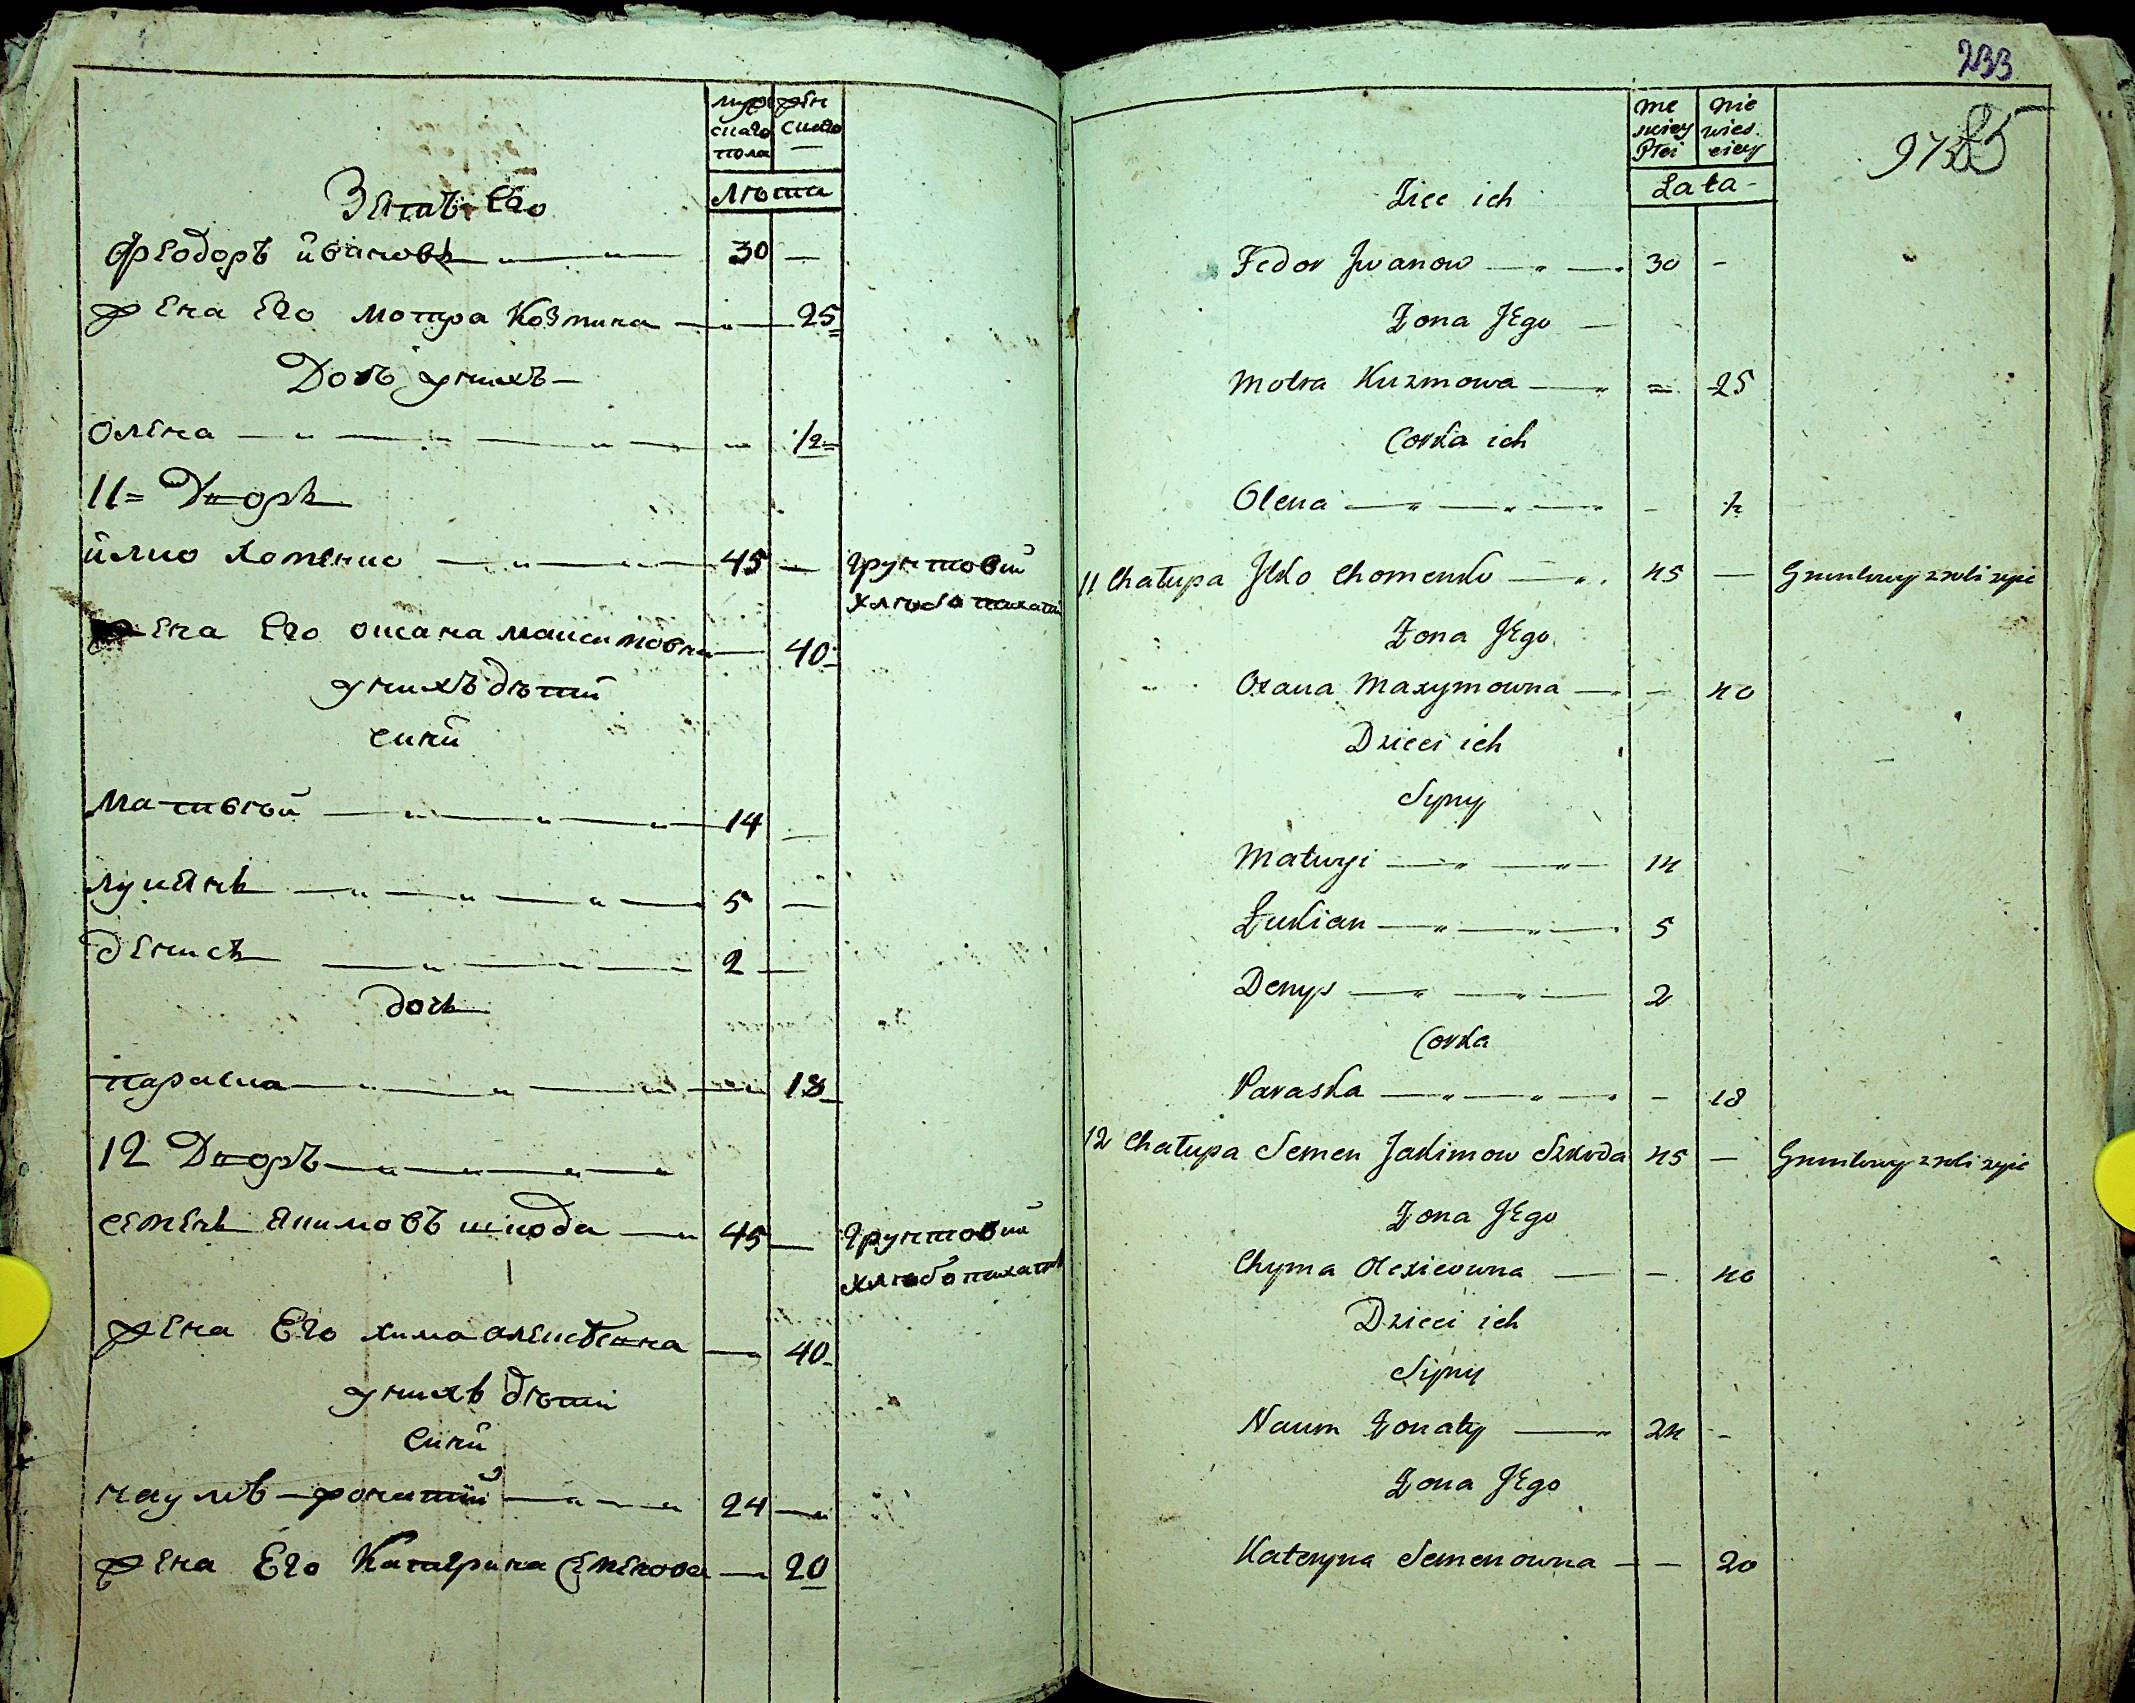 муж
скаго
пола
жен
скаго
лѣта
Зять Его
Феодоръ Ивановъ 30 —
жена Его мотра Козмина — 25
Дочь уних
олена — 1/2
11 = Дворъ
илко хоменко 45 — грунтовий
хлѣбопахатн
жена Его оксана максимовна — 40
унихъ дѣтий
сини
матвѣй 14 —
лукянъ 5 —
денисъ 2 —
дочь
параска — 18
12 Дворъ
семенъ якимовъ шкода 45 — грунтовий
хлѣбопахатн
жена Его хима алексѣевна — 40
унихъ дѣти
сини
наумъ жонатий 24 —
жена Его Катерина Семенова — 20
233
me
skiey
Płci
nie
wies
ciey
Lata
97
85
Zięc ich
Fedor Jwanow — 30 —
Zona JEgo —
Motra Kuzmowa — = 25
Corka ich
Olena — - 1/2
11 Chałupa Jlko Chomenko — 45 — Gruntowy z roli zyie
Zona JEgo
Oxana Maxymowna — - 40
Dzieci ich
Syny
Matwyi — 14
Łukian — 5
Denys — 2
Corka
Paraska — - 18
12 Chałupa Semen Jakimow Szkoda 45 — Gruntowy z roli zyie
Zona JEgo
Chyma Olexieowna — - 40
Dzieci ich
Syny
Naum Zonaty — 24 -
Zona JEgo
Kateryna Semenowna — - 20